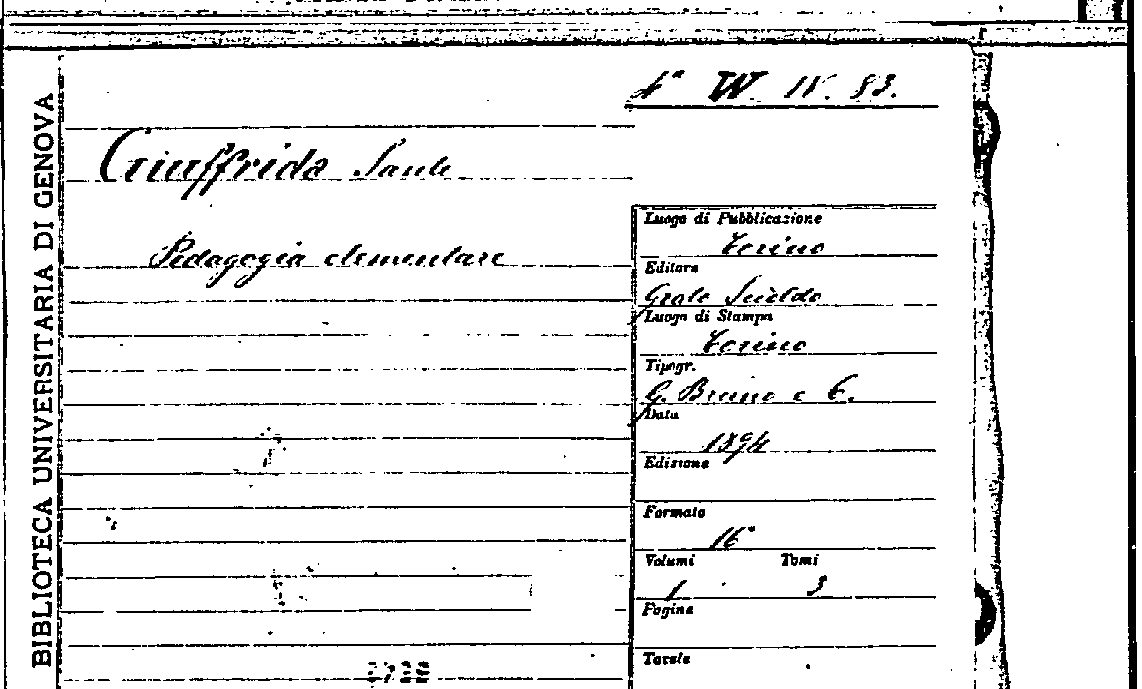 BIBLIOTECA UNIVERSITARIA DI GENOVA
4ª W. IV. 83.
Giuffrida Sante
Pedagogia elementare
Luogo di Pubblicazione
Torino
Editore
Grato Scioldo
Luogo di Stampa
Torino
Tipogr.
G. Bruno e C.
Data
1894
Edizione
Formato
16°
Volumi Tomi
1 3
Pagine
Tavole